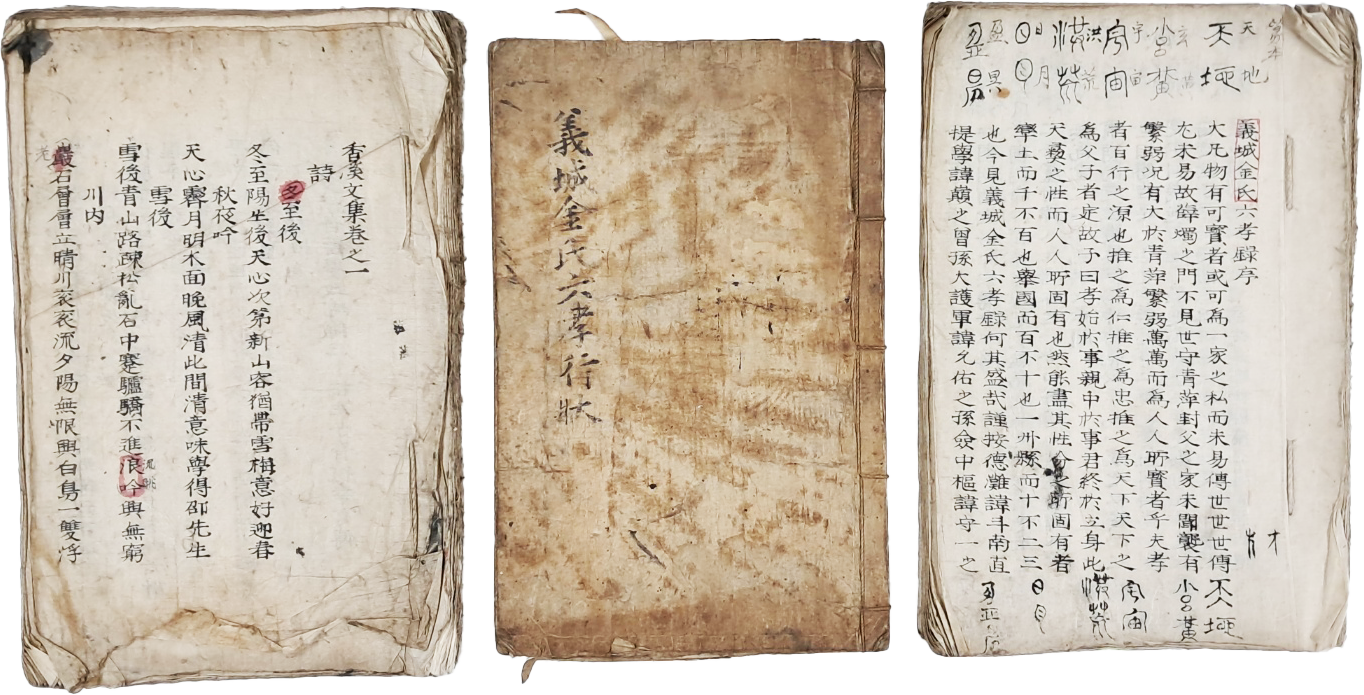 香溪文集卷之一
詩
冬至後
冬至陽生後天心次第新山客猶帶雪梅意好迎春
秋夜吟
天心霽月明水面晚風清此間清意味學得邵先生
雪後
雪後青山路疎松亂石中蹇驢驕不進浪吟興無窮
川內
巖石層層立晴川袞袞流夕陽無恨興白鳥一雙浮
義城金氏六孝行狀
天地
宇宙
洪荒
日月
盈昃
義城金氏六孝錄序
大凡物有可寶者或可爲一家之私而未易傳世世世傳
尤未易故薛燭之門不見世守青萍封父之家未聞襲有
繁弱况有大於青萍繁弱萬萬而爲人人所寶者乎夫孝
者百行之源也推之爲仁推之爲忠推之爲天下天下之
爲父子者定故子曰孝始於事親中於事君終於立身此
天彛之性而人人所固有也然能盡其性分之所固有者
率土而千不百也擧國而百不十也一州縣而十不二三
也今見義城金氏六孝錄何其盛哉謹按德灘諱斗南直
提學諱巔之曾孫大護軍諱允佑之孫僉中樞諱守一之